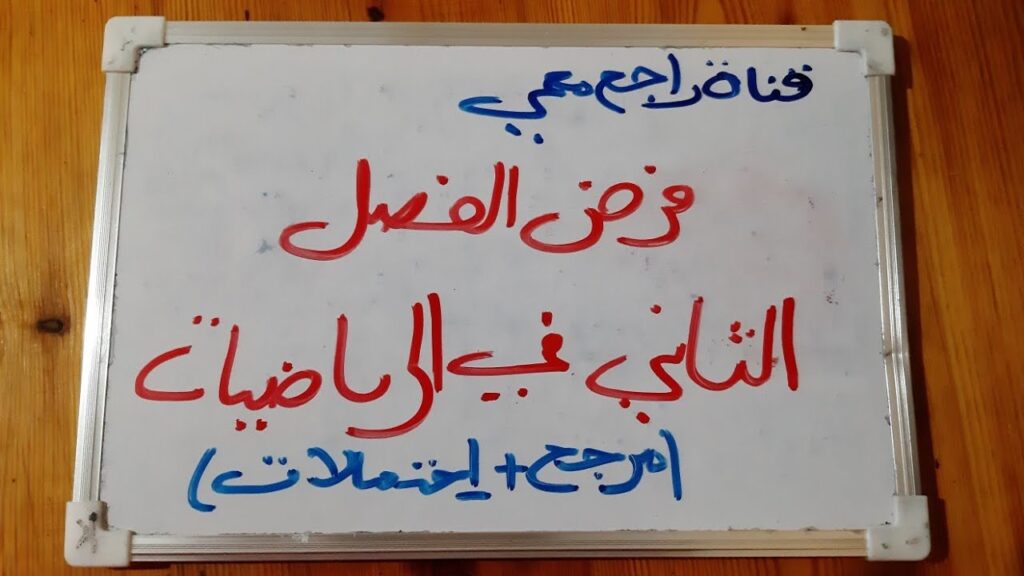 قناة راجع معي
فرض الفصل
الثاني في الرياضيات
(مرجح + إحتمالات)